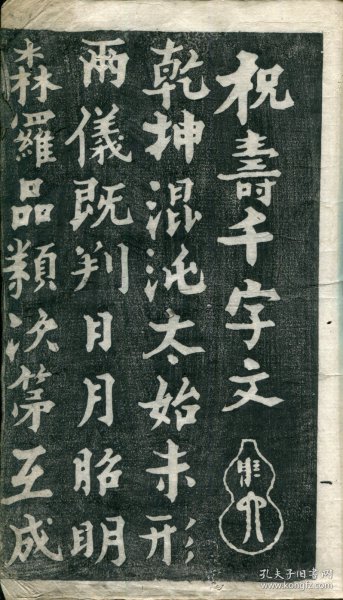 祝壽千字文
乾坤混沌太始未形
兩儀既判日月昭明
森羅品類次第互成
孔夫子旧书网